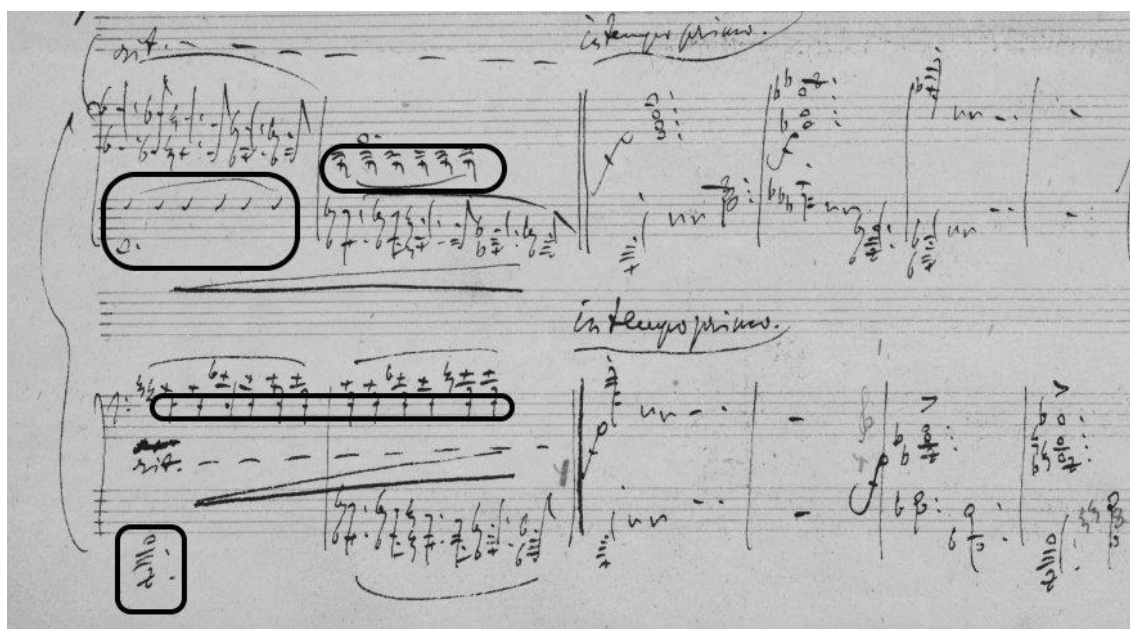 rit.
in tempo primo.
in tempo primo.
rit.